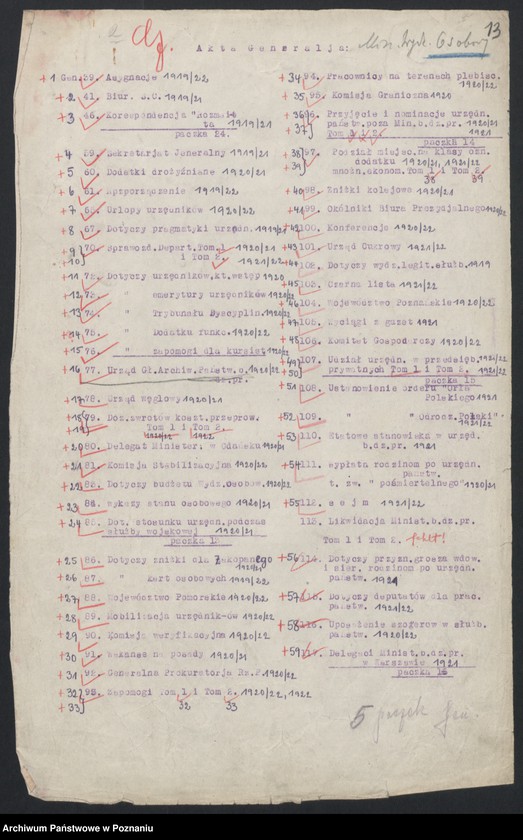 13
Akta Generalja:
+1 Gen. 39. Asygnacje 1919/22
+2 41. Biur. S.C. 1919/21
+3 46. Korespondencja "Rozmai-
ta 1919/21
paczka 24.
+4 59. Sekretarjat Jeneralny 1919/21
+5 60. Dodatki drożyźniane 1920/21
+6 61. Rozporządzenie 1919/22
+7 62. Urlopy urzędników 1920/22
+8 67. Dotyczy pragmatyki urzędn. 1919/21
+9 70. Sprawozd. Depart. Tom 1 1920/21
+10 i Tom 2. 1921/22
+11 72. Dotyczy urzędników, kt. wstęp 1920
+12 73. " emerytury urzędników 1920/22
+13 74. " Trybunału Dyscyplin. 1920/22
+14 75. " Dodatku funkc. 1920/22
+15 76. " zapomogi dla kursist. 1920/22
+16 77. Urząd Gł. Archiw. Państw. 1921/22
dz.pr.
+17 78. Urząd węglowy 1920/21
+18 79. Doz. zwrotów koszt. przeprow.
+19 Tom 1 i Tom 2.
1920/22 1922
+20 80. Delegat Minister. w Gdańsku 1920/21
+21 81. Komisja Stabilizacyjna 1920/22
+22 83. Dotyczy budżetu Wydz. osobow. 1920/22
23 84. wykazy stanu osobowego 1920/22
+24 85. Dot. stosunku urzędn. podczas
służby wojskowej 1920/21
paczka 13
+25 86. Dotyczy zniżki dla Zakopanego
1920/21
+26 87. " Kart osobowych 1919/22
+27 88. Województwo Pomorskie 1920/22
+28 89. Mobilizacja urzędnik-ów 1920/22
+29 90. Komisja weryfikacyjna 1920/22
+30 91. Wakanse na posady 1920/21
+31 92. Generalna Prokuratorja Rz.P. 1920/22
+32 93. Zapomogi Tom 1 i Tom 2. 1920/22, 1922
+33 32 33
+34 94. Pracownicy na terenach plebisc.
1920/22
+35 95. Komisja Graniczna 1920
+36 96. Przyjęcie i nominacje urzędn.
państw. poza Min. b.dz.pr. 1920/21
+37 Tom 1 i 2. 1921
paczka 14
+38 97. Podział miejsc. na klasy ozn.
dodatku 1920/21, 1920/22
+39 mnożn. ekonom. Tom 1 i Tom 2.
38 39
+40 98. Zniżki kolejowe 1920/21
+41 99. Okólniki Biura Prezydjalnego 1920/22
+42 100. Konferencje 1920/22
+43 101. Urząd Cukrowy 1921/22
+44 102. Dotyczy wydz. legit. służb. 1919
+45 103. Czarna lista 1921/22
+46 104. Województwo Poznańskie 1920/22
+47 105. Wyciągi z gazet 1921
+48 106. Komitet Gospodarczy 1920/22
+49 107. Udział urzędn. w przedsięb. 1921/22
+50 prywatnych Tom 1 i Tom 2. 1921/22
paczka 15
+51 108. Ustanowienie orderu "Orła
Polskiego 1921
+52 109. " " Odrodz. Polski"
1921/22
+53 110. Etatowe stanowiska w urzęd.
b.dz.pr. 1921
+54 111. wypłata rodzinom po urzędn.
państw.
t. zw. "pośmiertelnego" 1920/21
+55 112. Sejm 1921/22
113. Likwidacja Minist. b.dz.pr.
Tom 1 i Tom 2.
+56 114. Dotyczy przyzn. grosza wdow.
i sier. rodzinom po urzędn.
państw. 1921
+57 115. Dotyczy deputatów dla prac.
państw. 1921/22
+58 116. Uposażenie szoferów w służb.
państw. 1920/22
+59 117. Delegaci Minist. b.dz.pr.
w Warszawie 1921
paczka 16
5 paczek
Archiwum Państwowe w Poznaniu